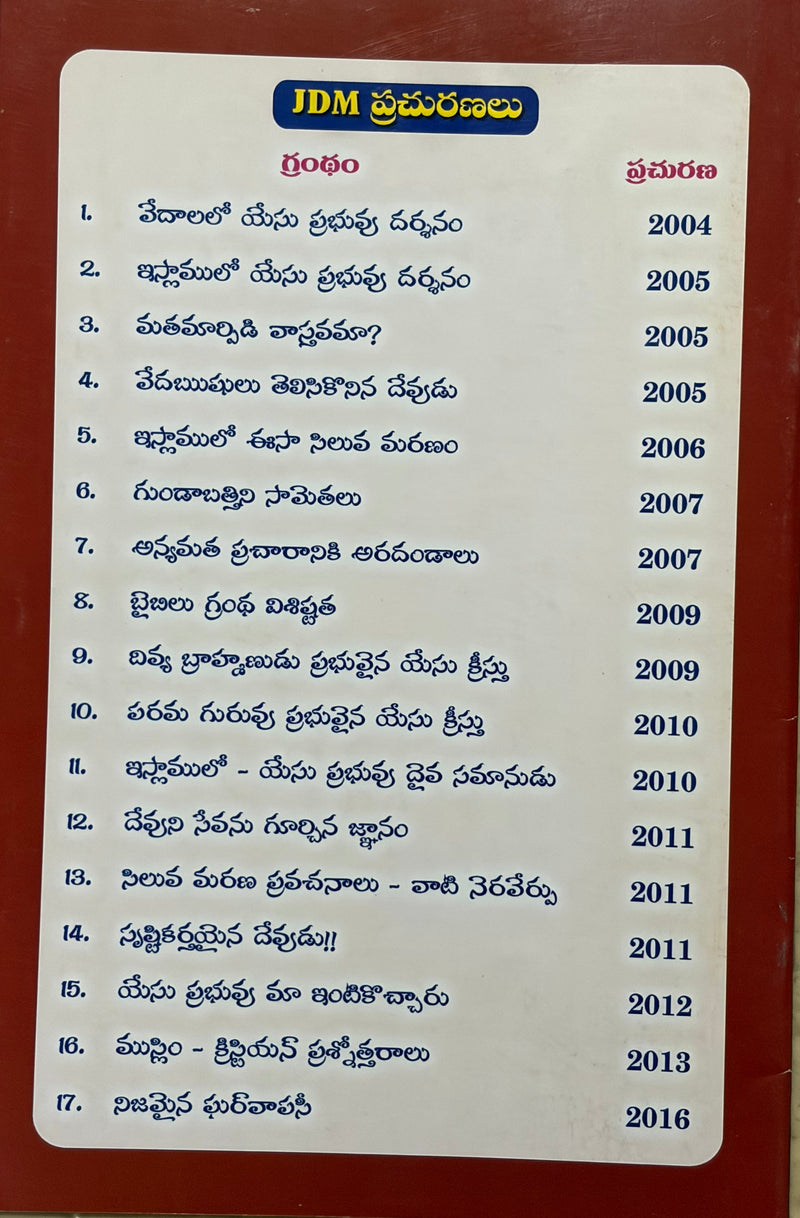 JDM ప్రచురణలు
గ్రంథం ప్రచురణ
1. వేదాలలో యేసు ప్రభువు దర్శనం 2004
2. ఇస్లాములో యేసు ప్రభువు దర్శనం 2005
3. మతమార్పిడి వాస్తవమా? 2005
4. వేదఋషులు తెలిసికొనిన దేవుడు 2005
5. ఇస్లాములో ఈసా సిలువ మరణం 2006
6. గుండాబత్తిని సామెతలు 2007
7. అన్యమత ప్రచారానికి అరదండాలు 2007
8. బైబిలు గ్రంథ విశిష్టత 2009
9. దివ్య బ్రాహ్మణుడు ప్రభువైన యేసు క్రీస్తు 2009
10. పరమ గురువు ప్రభువైన యేసు క్రీస్తు 2010
11. ఇస్లాములో - యేసు ప్రభువు దైవ సమానుడు 2010
12. దేవుని సేవను గూర్చిన జ్ఞానం 2011
13. సిలువ మరణ ప్రవచనాలు - వాటి నెరవేర్పు 2011
14. సృష్టికర్తయైన దేవుడు!! 2011
15. యేసు ప్రభువు మా ఇంటికొచ్చారు 2012
16. ముస్లిం - క్రిస్టియన్ ప్రశ్నోత్తరాలు 2013
17. నిజమైన ఘర్‌వాపసీ 2016